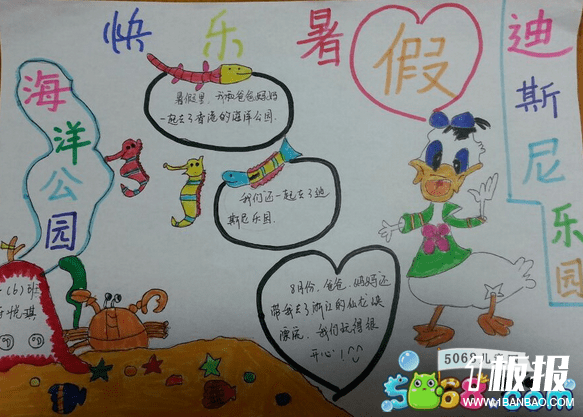 快乐暑假
海洋公园
迪斯尼乐园
暑假里,我和爸爸妈妈
一起去了香港的海洋公园.
我们还一起去了迪
斯尼乐园.
8月份,爸爸、妈妈还
带我去了浙江的仙龙峡
漂流,我们玩得很
开心!
(6)班
悦琪
1板报
www.1BANBAO.COM